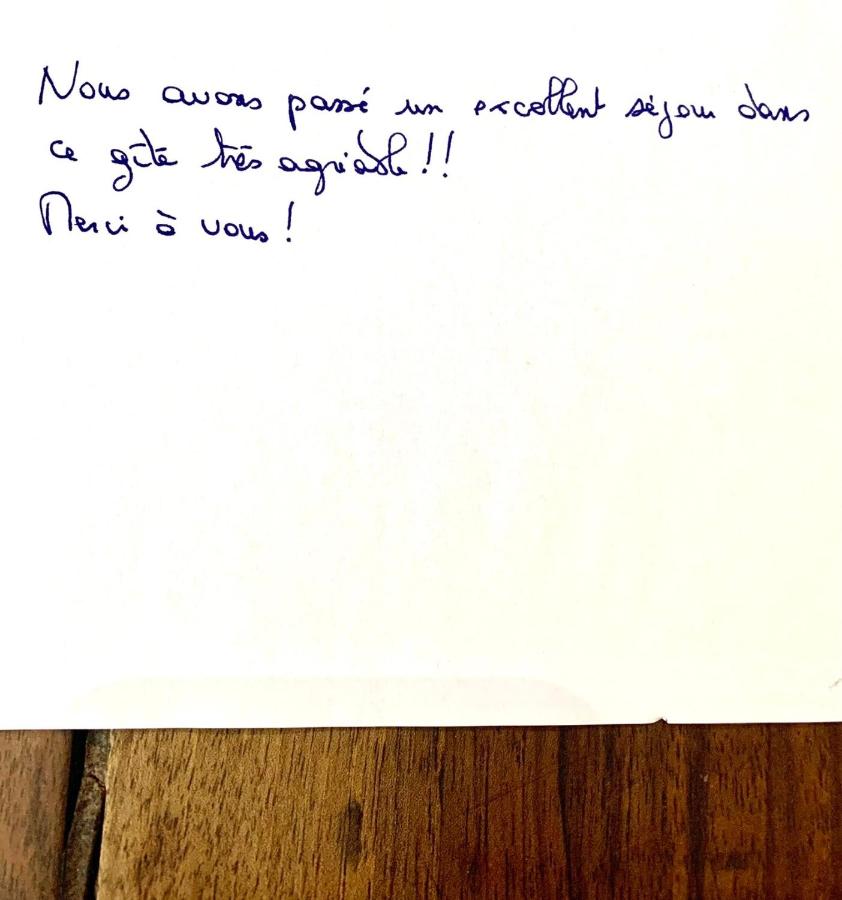 Nous avons passé un excellent séjour dans
ce gîte très agréable !!
Merci à vous !